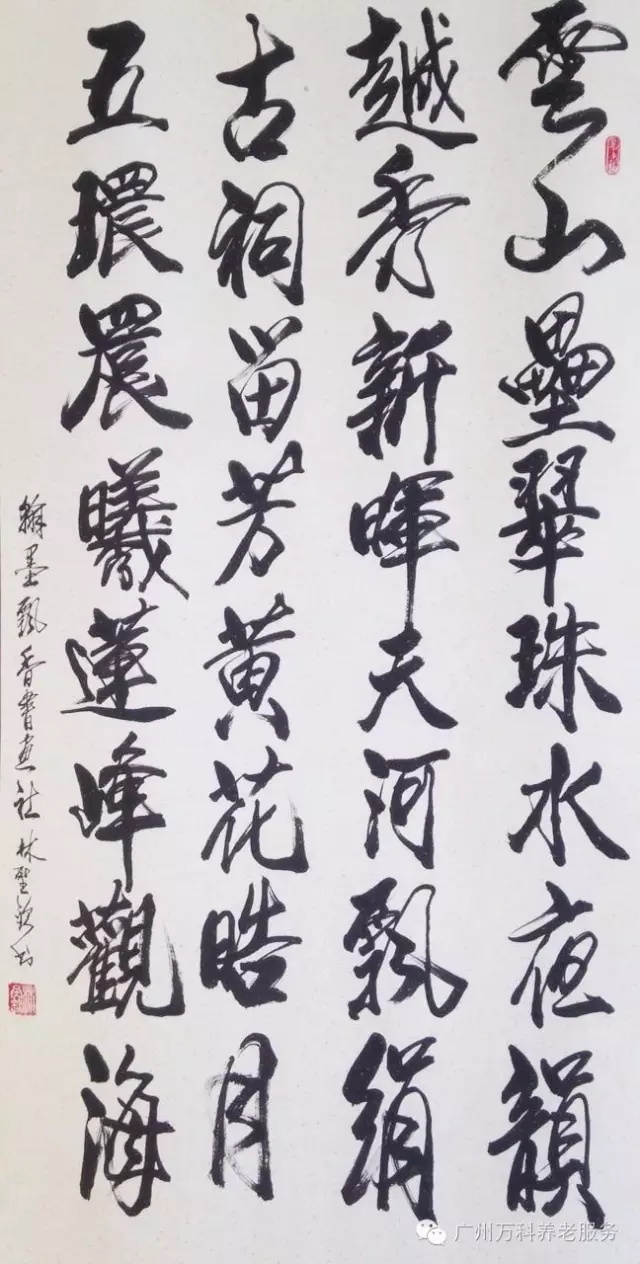 雲山疊翠珠水夜韻
越秀新暉天河飄絹
古祠留芳黄花皓月
五環晨曦蓮峰觀海
翰墨飘香書畫社 林聖欽书
广州万科养老服务